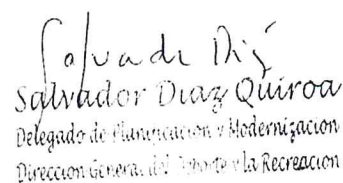 Salvador Diaz Quiroa
Delegado de Planificacion y Modernizacion
Direccion General del Deporte y la Recreacion